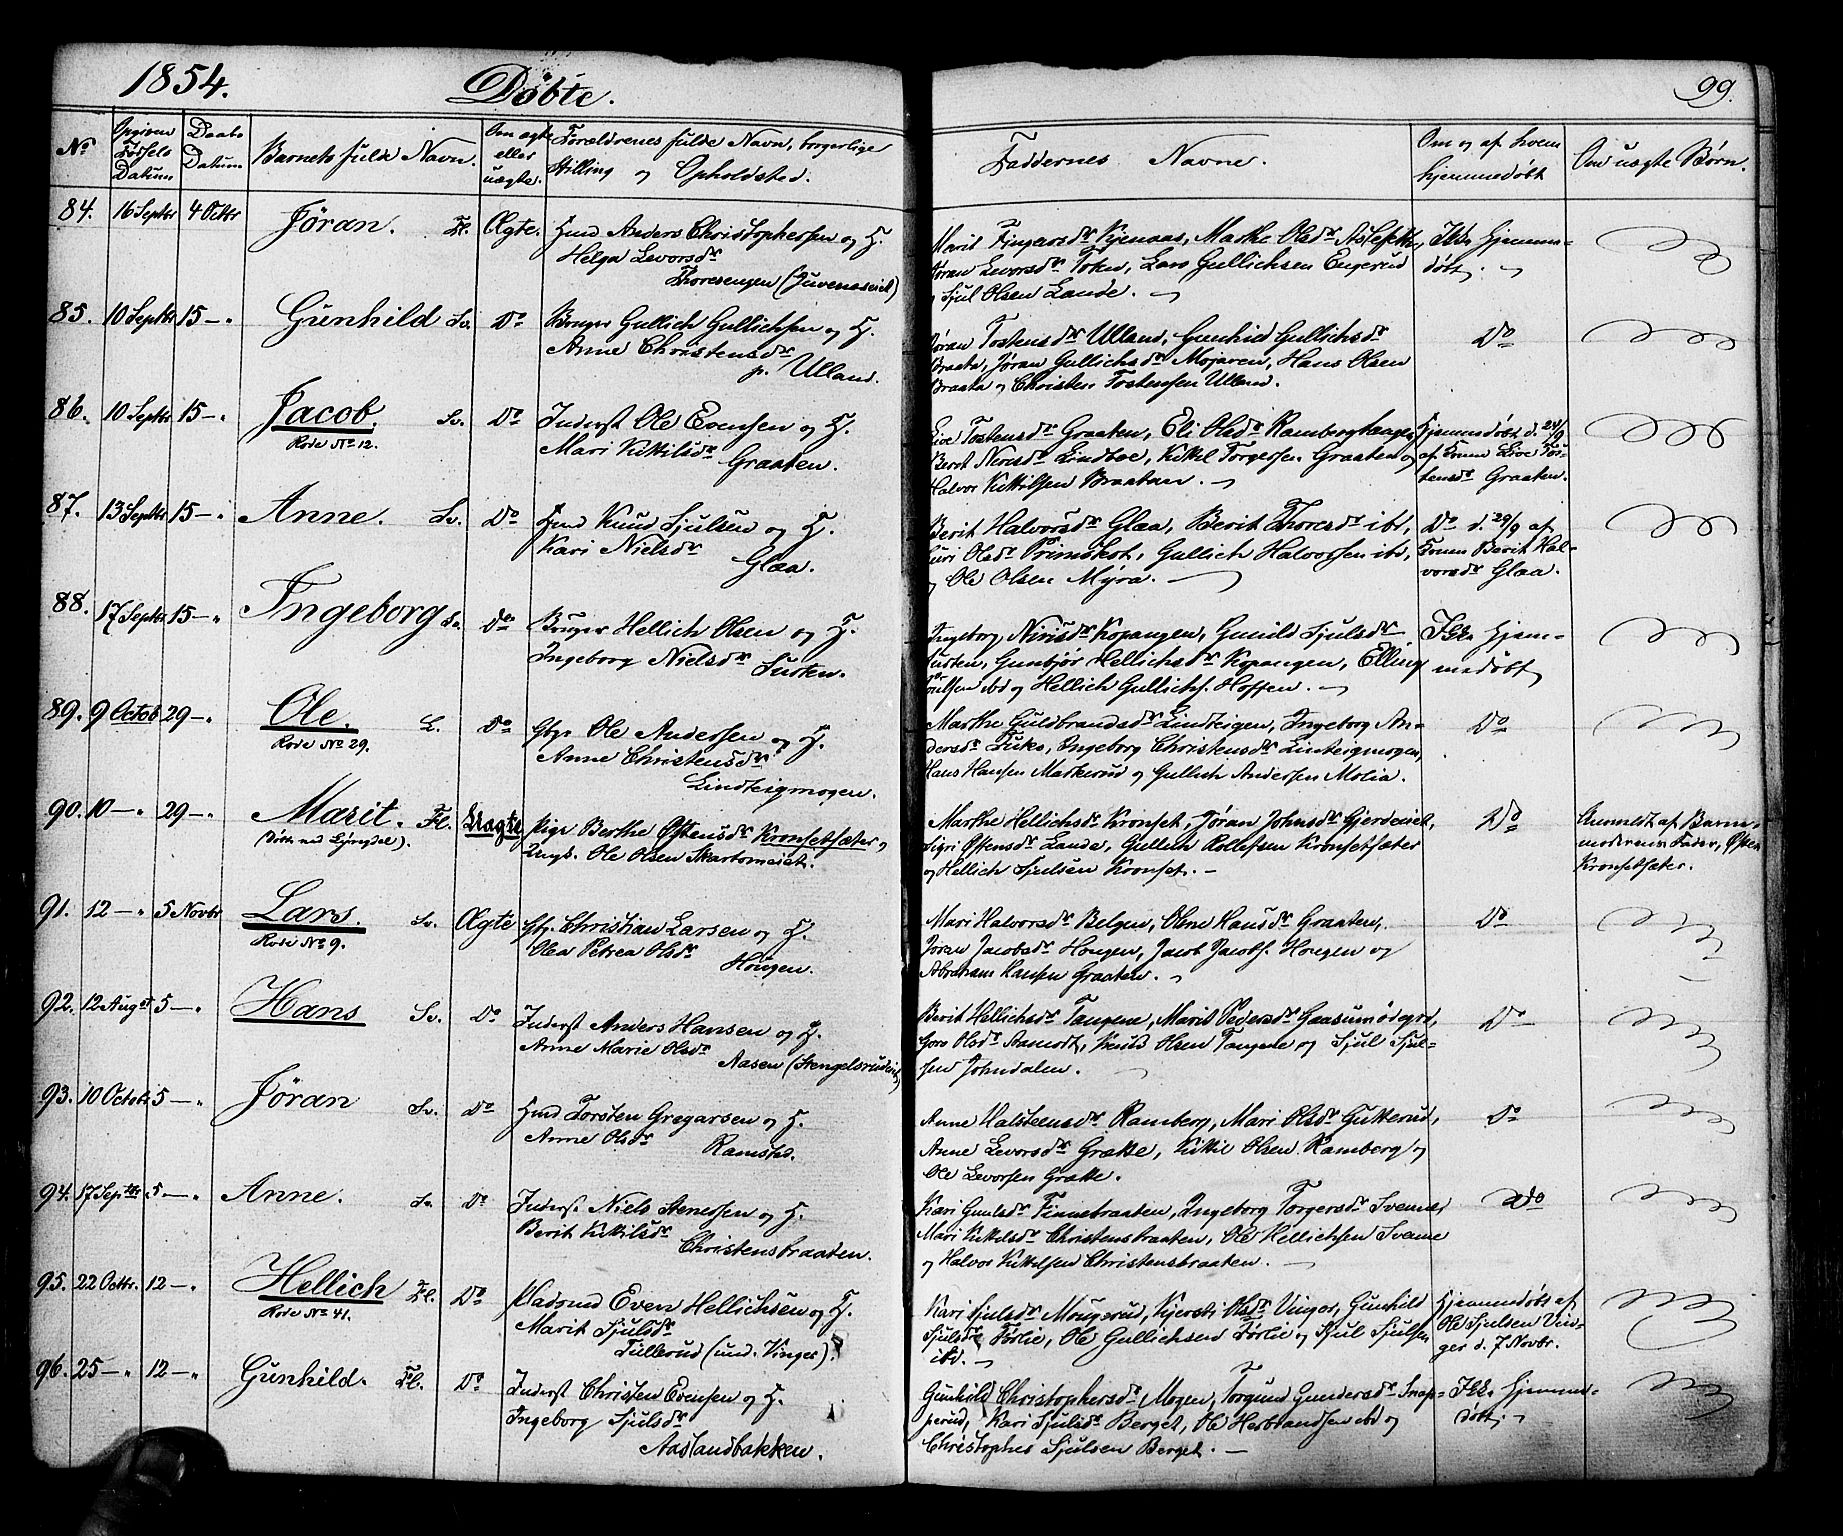 1854. Døbte. 99.
No Opgiven Fødsels Datum Daabs Datum Barnets fulde Navn. Om ægte eller uægte. Forældrenes fulde Navn, borgerlige Stilling og Opholdsted. Faddernes Navne. Om og af hvem hjemmedøbt Om uægte Børn.
84. 16 Septbr 4 Octbr Jöran. Fl. Ægte. Hmd Anders Christophersen og H.
Helga Levorsdr
Thoresengen (Juveneseiet)
Marit Olsdr
Jøran Levorsdr Toen, Lars Gullichsen Engerud
Sjul Olsen Lande.
Ikke hjemme-
døbt.
85. 10 Septbr 15 — " Gunhild Sv. Do Bruger Gullich Gullichsen og H.
Anne Christensdr
p. Ulland.
Jøran Tostensdr Ulland, Gunhild Gullichsdr
Braata, Jøran Gullichsdr Mojaren, Hans Olsen
Braata og Christen Tostensen Ulland.
Do
86. 10 Septbr 15 — " Jacob. Sv. Do Inderst Ole Evensen og H.
Rode No 12. Mari Kittilsdr
Graaten.
Live Tostensdr Graaten, Eli Olsdr Ramberghaugen
Berit Nirisdr Lindboe, Kittil Torgersen Graaten og
Halvor Kittilsen Braaten.
Hjemmedøbt d. 24/9
af Live Tos-
tensdr Graaten.
87. 13 Septbr 15 — " Anne. Sv. Do Hmd Knud Sjulsen og H.
Kari Nielsdr
Glaa.
Berit Halvorsdr Glaa, Berit Thoresdr ibd,
Guri Olsdr Trimskot, Gullich Halvorsen ibd,
og Ole Olsen Myra.
Do d. 29/9 af
Berit Hal-
vorsdr Glaa.
88. 17 Septbr 15 — " Ingeborg Sv. Do Bruger Hellich Olsen og H.
Ingeborg Nielsdr
Susten.
Ingeborg Nirisdr Kopangen, Gunild Sjulsdr
Susten, Gunbjør Hellichsdr Kopangen, Elling
ibd og Hellich Gullichs. Hoffen.
Ikke hjem-
medøbt
89. 9 Octob 29 — " Ole. L. Do Gbr. Ole Andersen og H.
Rode No 29. Anne Christensdr
Lindteigmogen.
Marthe Guldbrandsdr Lindteigen, Ingeborg An-
dersdr Ingeborg Christensdr Linteigmogen,
Hans Hansen Markerud og Gullich Andersen Molia.
Do
90. 10 — " 29 — " Marit. Fl. Uagte Pige Berthe Østensdr Kronsetsæter og
(Døbt ved Lyngdal). Ungk. Ole Olsen Skartomeiet.
Marthe Hellichsdr Kronset, Jøran Johnsdr Gjerdeiet,
Sigri Østensdr Lande, Gullich Rollefsen Kronsetsæter
og Hellich Sjulsen Kronset.
Do
Anmeldt af Barne-
moderens Fader, Østen
Kronsetsæter.
91. 12 — " 5 Novbr Lars. Sv. Ægte Gbr. Christian Larsen og H.
Rode No 9. Olea Petrea Olsdr
Hougen.
Mari Halvorsdr Belgen, Olene Hansdr Graaten,
Joran Jacobsdr Hougen, Jacob Jacobs. Hougen og
Abraham Hansen Graaten.
Do
92. 12 August 5 — " Hans Sv. Do Inderst Anders Hansen og H.
Anne Marie Olsdr
Aasen (Stengelsrudeiet)
Berit Hellichsdr Tangene, Marit Pedersdr Gaasumødegrd,
Goro Olsdr Aamodt, Knud Olsen Tangene og Sjul Sjul-
sen Johndalen.
Do
93. 10 Octob 5 — " Jöran Sv. Do Hmd Torsten Gregarsen og H.
Anne Olsdr
Ramsted.
Anne Halsteensdr Ramberg, Mari Olsdr Gutterud,
Anne Levorsdr Grætte, Kittil Olsen Ramberg og
Ole Levorsen Grætte.
Do
94. 17 Septbr 5 — " Anne. Sv. Do Inderst Niels Arnesen og H.
Berit Kittilsdr
Christensbraaten.
Kari Gunlsdr Finnebraaten, Ingeborg Torgersdr Svenne
Mari Kittilsdr Christensbraaten, Ole Hellichsen Svenne
og Halvor Kittelsen Christensbraaten.
Do
95. 22 Octbr. 12 — " Hellich Fl. Do Pladsmd Even Hellichsen og H.
Rode No 41. Marit Sjulsdr
Tullerud (und. Vinger).
Kari Sjulsdr Mougerud, Kjersti Olsdr Vinger, Gunhild
Sjulsdr Førlie, Ole Gullichsen Førlie og Sjul Sjulsen
ibd.
Hjemmedøbt af
Ole Sjulsen Vin-
ger d. 7 Novbr.
96. 25 — " 12 — " Gunhild. Fl. Do Inderst Christen Evensen og H.
Ingeborg Sjulsdr
Aaslandbakken.
Gunhild Christophersdr Mogen, Torgund Gundersdr Snap-
perud, Kari Sjulsdr Berget, Ole Herbrandsen ibd og
Christopher Sjulsen Berget.
Ikke hjemme-
døbt.